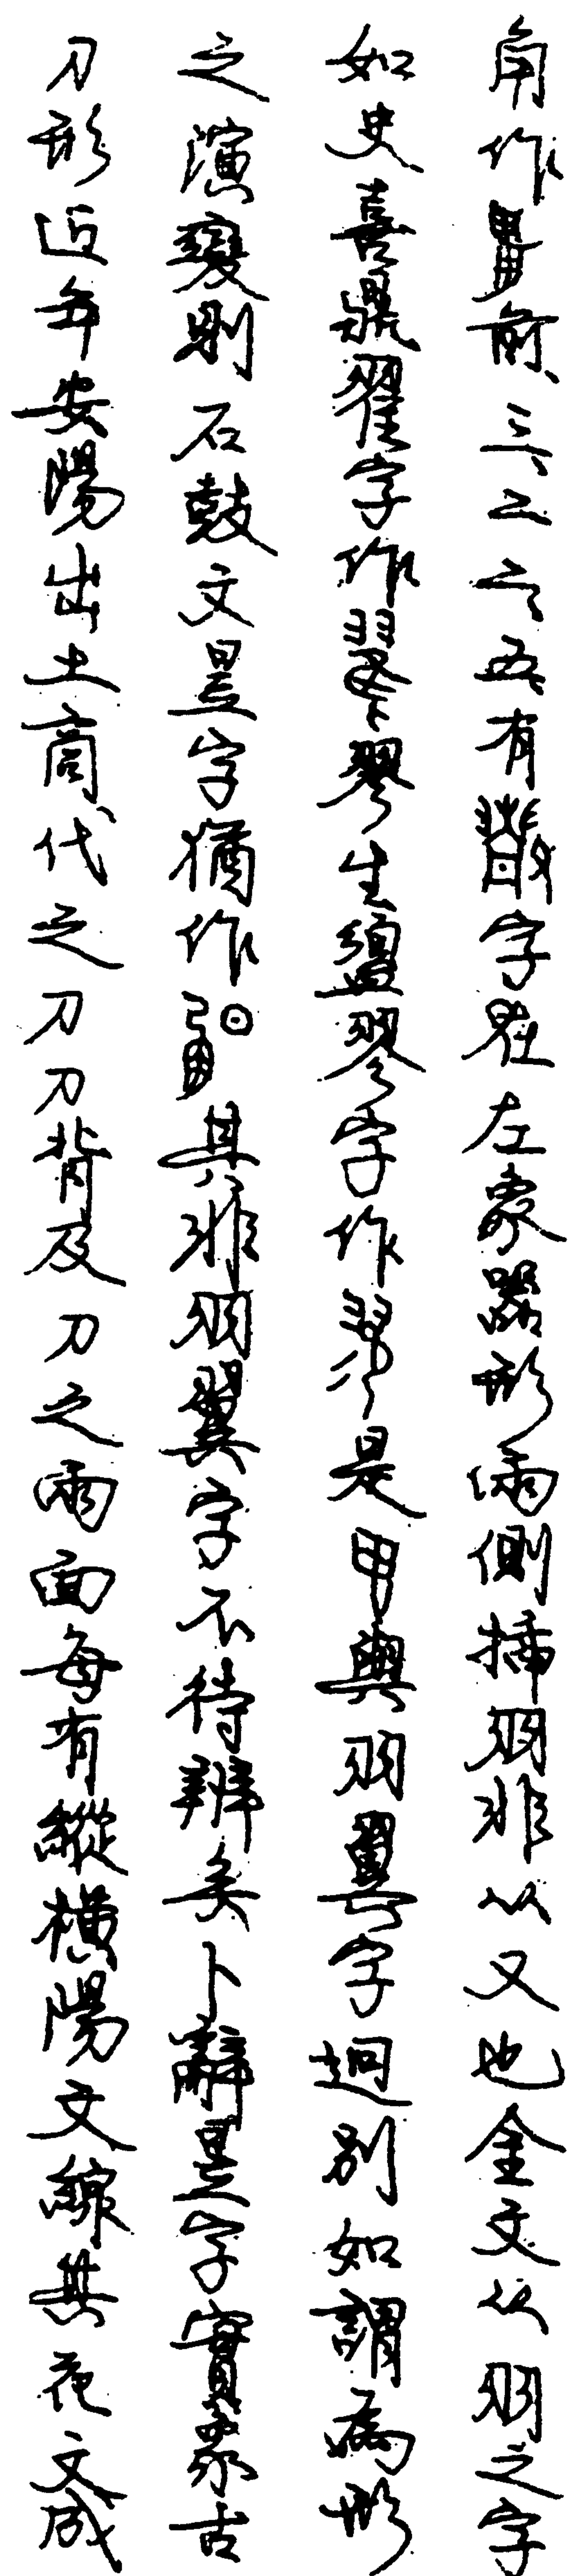 角作前三二六五有字在左象器形兩側插羽非从又也金文从羽之字
如史喜鼎翟字作翏生盨翏字作是甲與羽翼字迥別如謂為形
之演變則石鼓文昱字猶作其非羽翼字不待辨矣卜辭昱字實象古
刀形近年安陽出土商代之刀刀背及刀之兩面每有縱橫陽文線其花文成